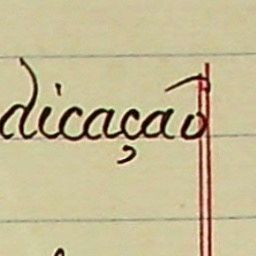 dicação